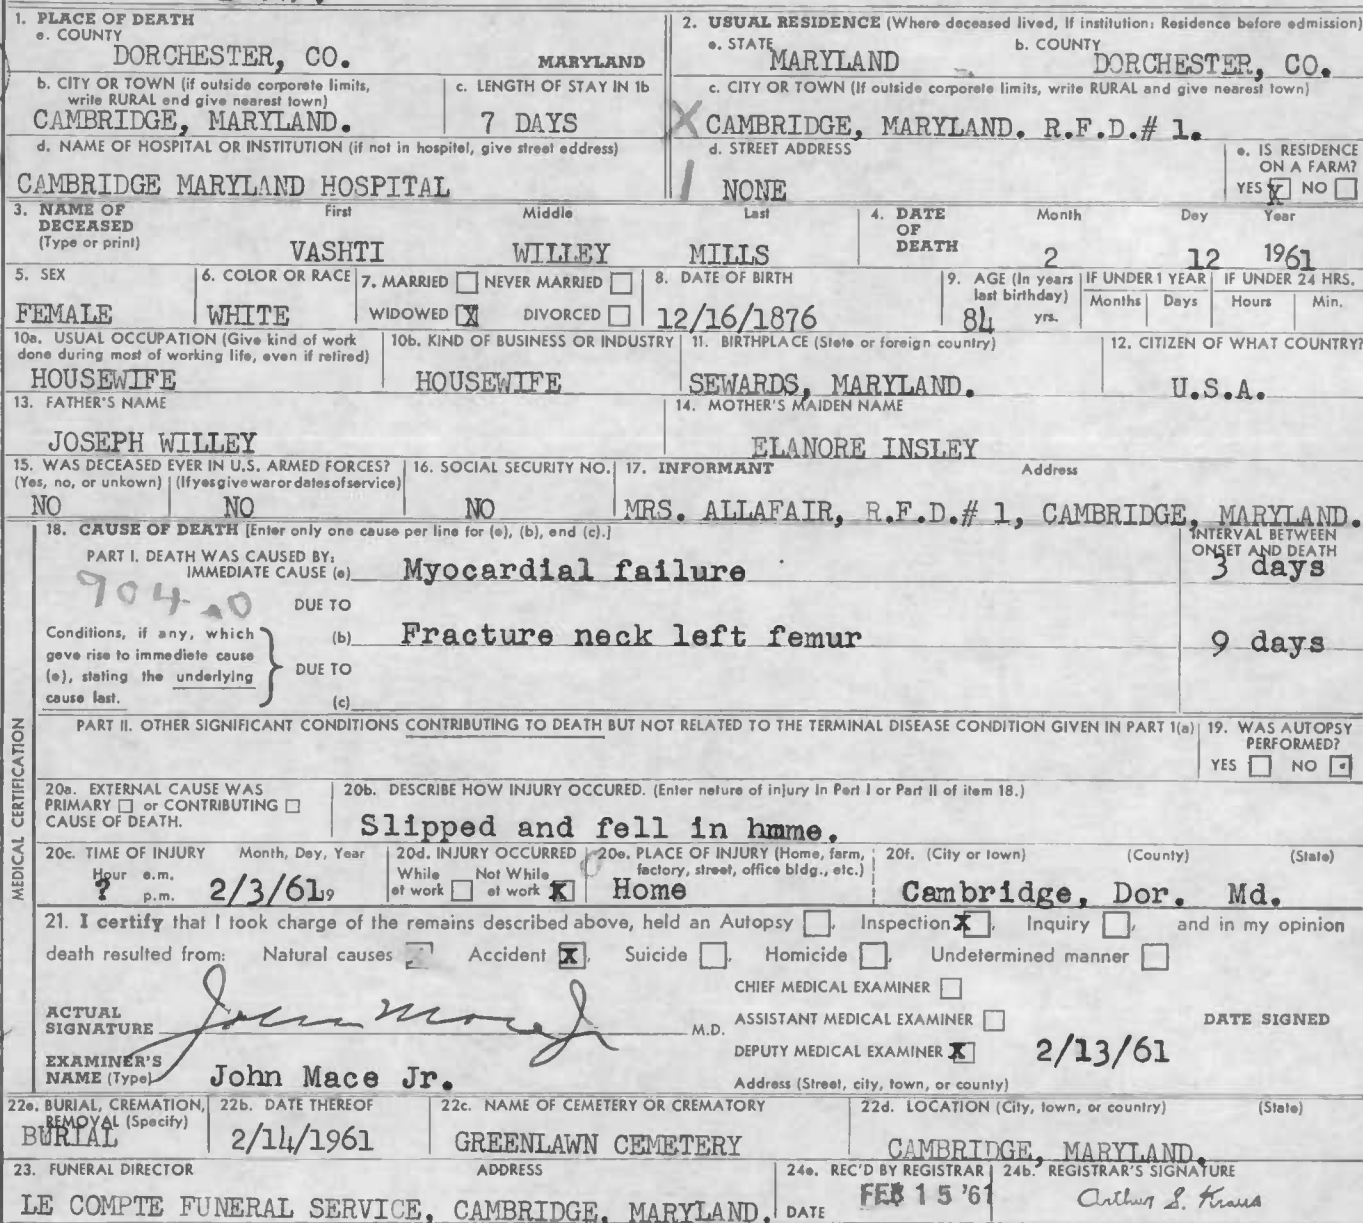 1. PLACE OF DEATH
a. COUNTY
DORCHESTER, CO. MARYLAND
2. USUAL RESIDENCE (Where deceased lived, If institution: Residence before admission)
a. STATE b. COUNTY
MARYLAND DORCHESTER, CO.
b. CITY OR TOWN (if outside corporate limits, write RURAL and give nearest town)
CAMBRIDGE, MARYLAND.
c. LENGTH OF STAY IN 1b
7 DAYS
c. CITY OR TOWN (If outside corporate limits, write RURAL and give nearest town)
X CAMBRIDGE, MARYLAND. R.F.D.# 1.
d. NAME OF HOSPITAL OR INSTITUTION (if not in hospital, give street address)
CAMBRIDGE MARYLAND HOSPITAL
d. STREET ADDRESS
NONE
e. IS RESIDENCE
ON A FARM?
YES X NO
3. NAME OF DECEASED
(Type or print)
First Middle Last
VASHTI WILLEY MILLS
4. DATE OF DEATH
Month Day Year
2 12 1961
5. SEX
FEMALE
6. COLOR OR RACE
WHITE
7. MARRIED NEVER MARRIED
WIDOWED X DIVORCED
8. DATE OF BIRTH
12/16/1876
9. AGE (In years last birthday)
84 yrs.
IF UNDER 1 YEAR
Months Days
IF UNDER 24 HRS.
Hours Min.
10a. USUAL OCCUPATION (Give kind of work done during most of working life, even if retired)
HOUSEWIFE
10b. KIND OF BUSINESS OR INDUSTRY
HOUSEWIFE
11. BIRTHPLACE (State or foreign country)
SEWARDS, MARYLAND.
12. CITIZEN OF WHAT COUNTRY?
U.S.A.
13. FATHER'S NAME
JOSEPH WILLEY
14. MOTHER'S MAIDEN NAME
ELANORE INSLEY
15. WAS DECEASED EVER IN U.S. ARMED FORCES?
(Yes, no, or unkown) (If yes give war or dates of service)
NO NO
16. SOCIAL SECURITY NO.
NO
17. INFORMANT Address
MRS. ALLAFAIR, R.F.D.# 1, CAMBRIDGE, MARYLAND.
18. CAUSE OF DEATH [Enter only one cause per line for (a), (b), and (c).]
INTERVAL BETWEEN
ONSET AND DEATH
PART I. DEATH WAS CAUSED BY:
IMMEDIATE CAUSE (a) Myocardial failure 3 days
904.0
DUE TO
Conditions, if any, which gave rise to immediate cause (a), stating the underlying cause last.
(b) Fracture neck left femur 9 days
DUE TO
(c)
PART II. OTHER SIGNIFICANT CONDITIONS CONTRIBUTING TO DEATH BUT NOT RELATED TO THE TERMINAL DISEASE CONDITION GIVEN IN PART 1(a)
19. WAS AUTOPSY PERFORMED?
YES NO
MEDICAL CERTIFICATION
20a. EXTERNAL CAUSE WAS
PRIMARY or CONTRIBUTING
CAUSE OF DEATH.
20b. DESCRIBE HOW INJURY OCCURED. (Enter nature of injury in Part I or Part II of item 18.)
Slipped and fell in hmme.
20c. TIME OF INJURY Month, Day, Year
Hour a.m.
? p.m. 2/3/61 19
20d. INJURY OCCURRED
While at work Not While at work X
20e. PLACE OF INJURY (Home, farm, factory, street, office bldg., etc.)
Home
20f. (City or town) (County) (State)
Cambridge, Dor. Md.
21. I certify that I took charge of the remains described above, held an Autopsy , Inspection X , Inquiry , and in my opinion
death resulted from: Natural causes Accident X , Suicide , Homicide , Undetermined manner
ACTUAL SIGNATURE John Mace Jr M.D.
CHIEF MEDICAL EXAMINER
ASSISTANT MEDICAL EXAMINER
DEPUTY MEDICAL EXAMINER X
DATE SIGNED
2/13/61
EXAMINER'S NAME (Type) John Mace Jr.
Address (Street, city, town, or county)
22a. BURIAL, CREMATION, REMOVAL (Specify)
BURIAL
22b. DATE THEREOF
2/14/1961
22c. NAME OF CEMETERY OR CREMATORY
GREENLAWN CEMETERY
22d. LOCATION (City, town, or country) (State)
CAMBRIDGE, MARYLAND.
23. FUNERAL DIRECTOR ADDRESS
LE COMPTE FUNERAL SERVICE, CAMBRIDGE, MARYLAND.
24a. REC'D BY REGISTRAR
DATE FEB 15 '61
24b. REGISTRAR'S SIGNATURE
Arthur S. Kraus